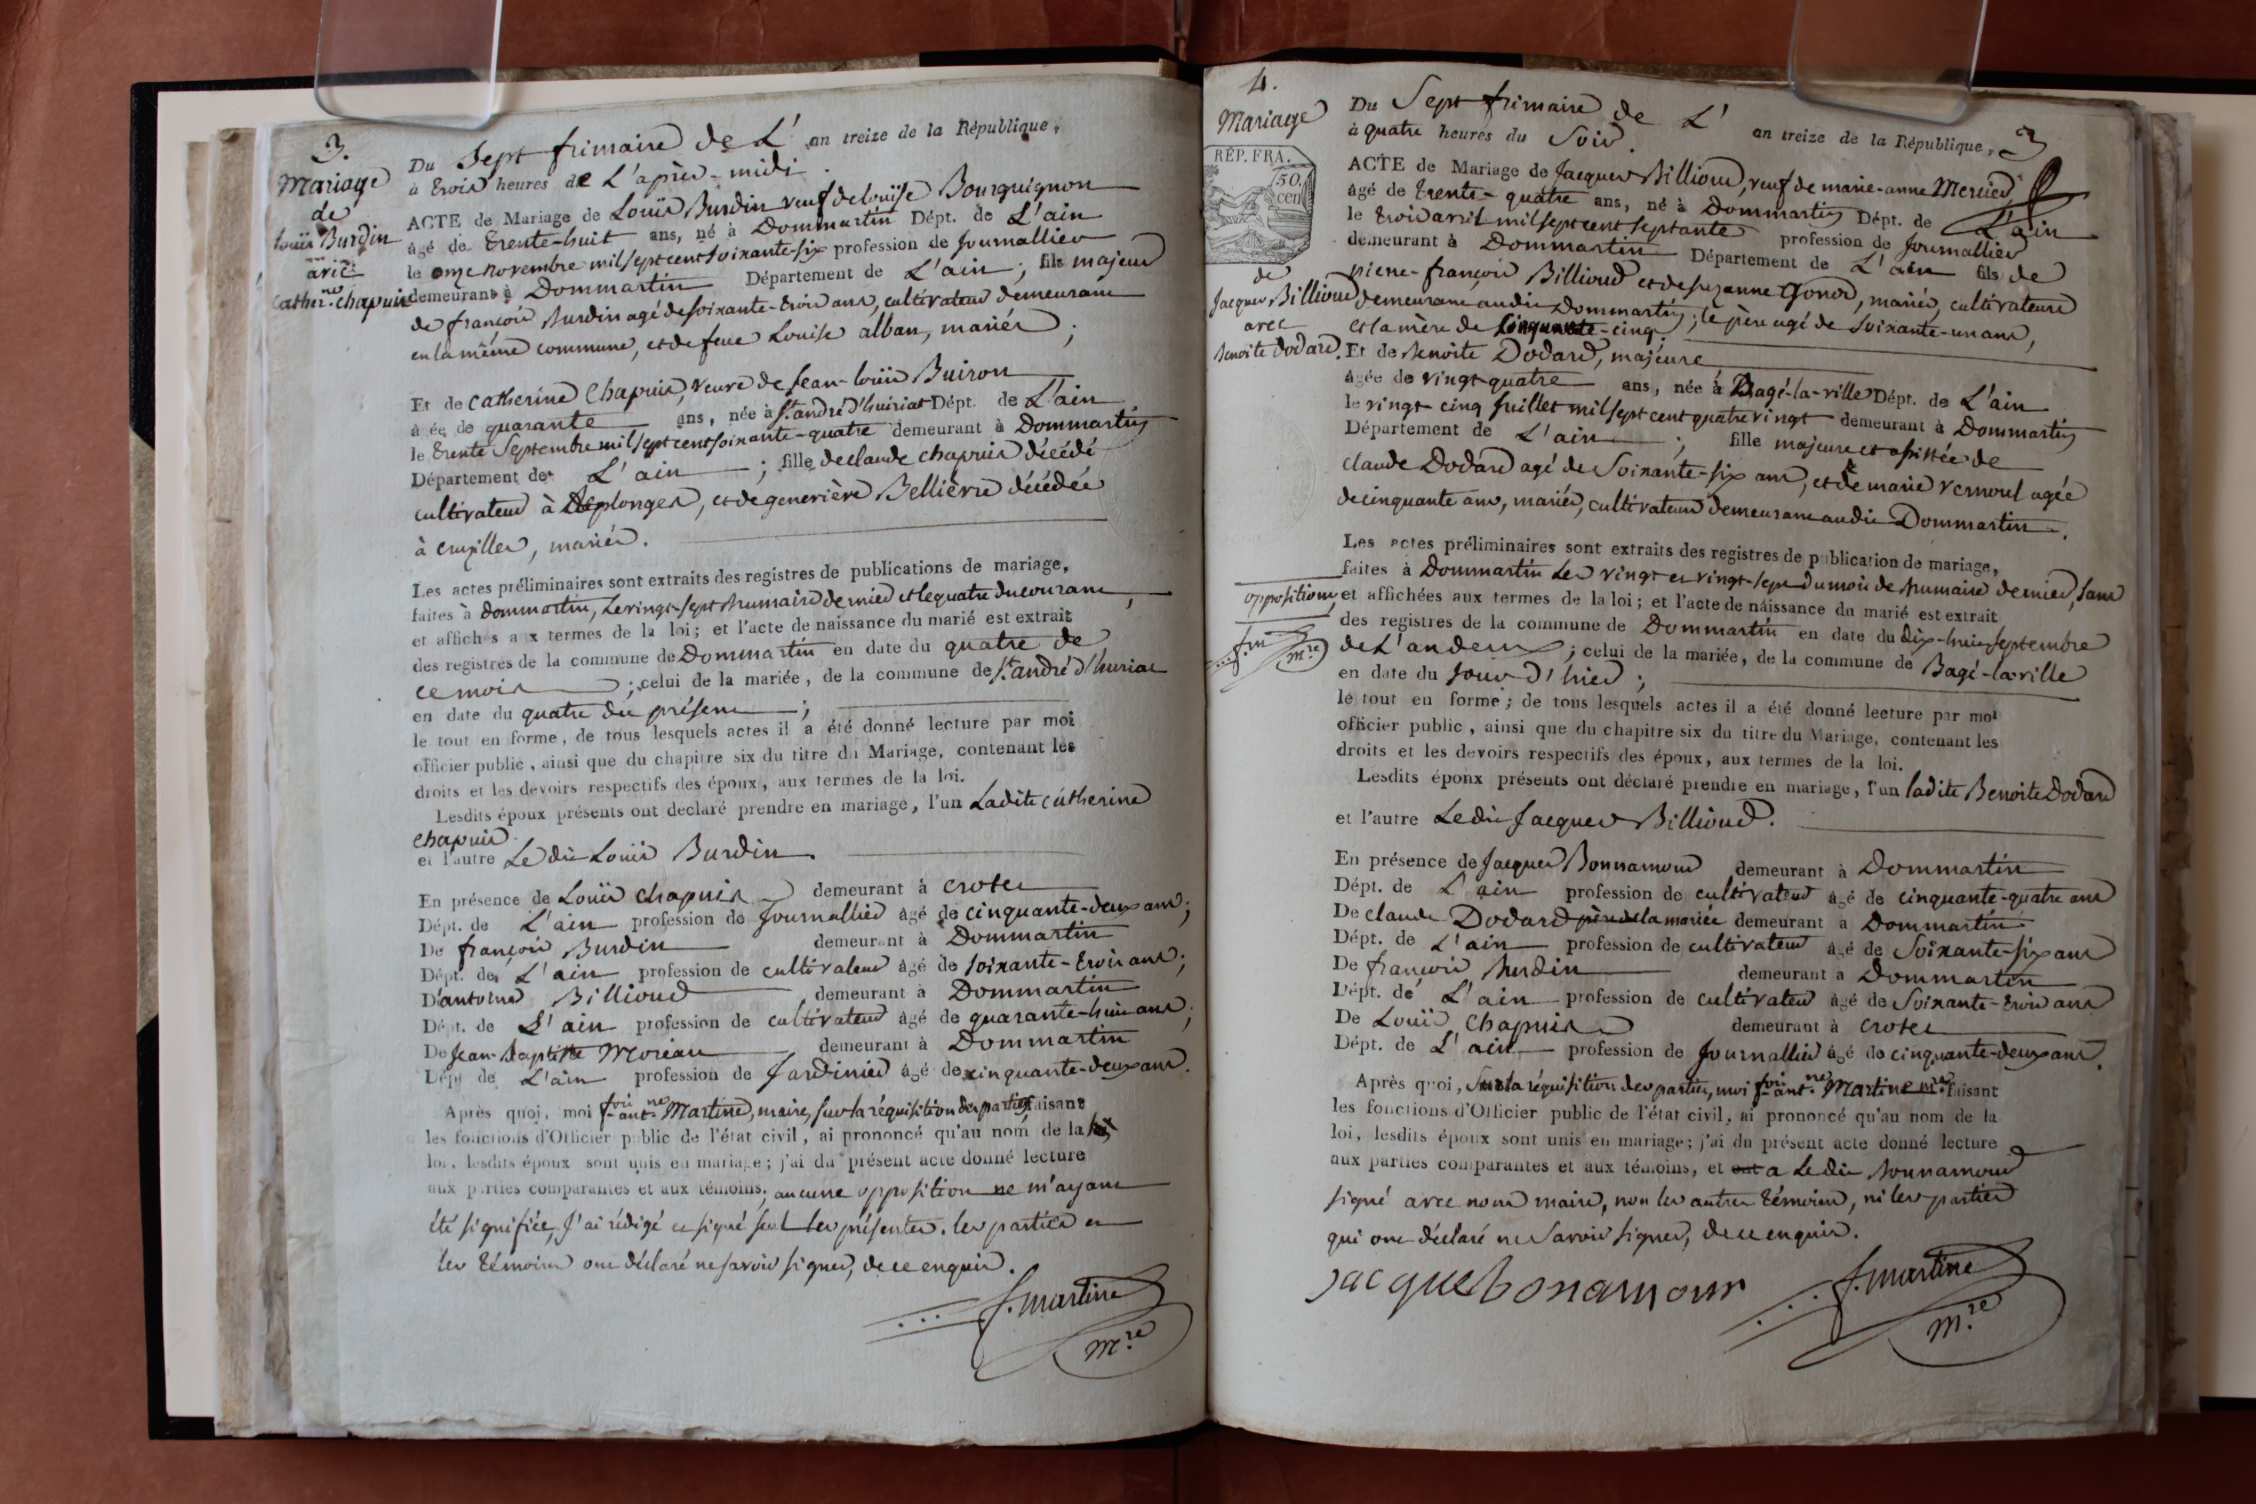 3.
Mariage
de
Louis Burdin
avec
Cather.ne Chapuis
Du Sept frimaire de L' an treize de la République,
à trois heures de L'après-midi.
ACTE de Mariage de Louis Burdin veuf de Louise Bourguignon
âgé de trente-huit ans, né à Dommartin Dépt. de L'ain
le onze novembre mil sept cent soixante-six profession de Journallier
demeurant à Dommartin Département de L'ain ; fils majeur
de françois Burdin agé de soixante-trois ans, cultivateur demeurant
en la même commune, et de feue Louise alban, mariés ;
Et de catherine Chapuis, veuve de Jean-Louis Buiron
âgée de quarante ans, née à St. andré d'huiriat Dépt. de L'ain
le trente Septembre mil sept cent soixante-quatre demeurant à Dommartin
Département de L'ain ; fille de claude chapuis décédé
cultivateur à Replonges, et de genevière Bellièvre décédée
à cruzilles, mariés.
Les actes préliminaires sont extraits des registres de publications de mariage,
faites à dommartin, le vingt-sept brumaire dernier et le quatre du courant,
et affichés aux termes de la loi ; et l'acte de naissance du marié est extrait
des registres de la commune de Dommartin en date du quatre de
ce mois ; celui de la mariée, de la commune de St. andré d'huriat
en date du quatre du présent ;
le tout en forme, de tous lesquels actes il a été donné lecture par moi
officier public, ainsi que du chapitre six du titre du Mariage, contenant les
droits et les devoirs respectifs des époux, aux termes de la loi.
Lesdits époux présents ont declaré prendre en mariage, l'un Ladite catherine
Chapuis
et l'autre Le dit Louis Burdin.
En présence de Louis chapuis demeurant à crotet
Dépt. de L'ain profession de Journallier âgé de cinquante-deux ans ;
De françois Burdin demeurant à Dommartin
Dépt. de L'ain profession de cultivateur âgé de soixante-trois ans ;
D'antoine Billioud demeurant à Dommartin
Dépt. de L'ain profession de cultivateur âgé de quarante-huit ans ;
De Jean-Baptiste Moreau demeurant à Dommartin
Dépt. de L'ain profession de Jardinier âgé de cinquante-deux ans.
Après quoi, moi f.ois-ant.ne Martine, maire, sur la réquisition des parties, faisant
les fonctions d'Officier public de l'état civil, ai prononcé qu'au nom de la
loi, lesdits époux sont unis en mariage ; j'ai du présent acte donné lecture
aux parties comparantes et aux témoins, aucune opposition ne m'ayant
été signifiée, J'ai rédigé et signé seul les présentes. les parties et
les témoins ont déclaré ne savoir signer, de ce enquis.
f. martine
m.re
4.
Mariage
RÉP. FRA.
50.
cen
de
Jacques Billioud
avec
Benoite Dodard.
3
Du Sept frimaire de L' an treize de la République,
à quatre heures du Soir.
ACTE de Mariage de Jacques Billioud, veuf de marie-anne Mercier,
âgé de trente-quatre ans, né à Dommartin Dépt. de L'ain
le trois avril mil sept cent septante profession de Journallier
demeurant à Dommartin Département de L'ain fils de
pierre-françois Billioud et de suzanne Gonod, mariés, cultivateurs
demeurant audit Dommartin ; le père agé de soixante-un ans,
et la mère de cinquante-cinq.
Et de Benoite Dodard, majeure
âgée de vingt-quatre ans, née à Bagé-la-ville Dépt. de L'ain
le vingt cinq Juillet mil sept cent quatre vingt demeurant à Dommartin
Département de L'ain ; fille majeure et assistée de
claude Dodard agé de Soixante-six ans, et de marie vernoul agée
de cinquante ans, mariés, cultivateurs demeurant audit Dommartin.
Les actes préliminaires sont extraits des registres de publication de mariage,
faites à Dommartin Les vingt et vingt-sept du mois de brumaire dernier, sans
oppositions, et affichées aux termes de la loi ; et l'acte de naissance du marié est extrait
des registres de la commune de Dommartin en date du dix-huit septembre
f. m m.re
de L'an deux ; celui de la mariée, de la commune de Bagé-la-ville
en date du Jour d'hier ;
le tout en forme ; de tous lesquels actes il a été donné lecture par moi
officier public, ainsi que du chapitre six du titre du Mariage, contenant les
droits et les devoirs respectifs des époux, aux termes de la loi.
Lesdits époux présents ont déclaré prendre en mariage, l'un ladite Benoite Dodard
et l'autre Le dit Jacques Billioud.
En présence de Jacques Bonnamour demeurant à Dommartin
Dépt. de L'ain profession de cultivateur âgé de cinquante-quatre ans
De claude Dodard père de la mariée demeurant à Dommartin
Dépt. de L'ain profession de cultivateur âgé de Soixante-six ans
De françois Burdin demeurant à Dommartin
Dépt. de L'ain profession de cultivateur âgé de Soixante-trois ans
De Louis Chapuis demeurant à crotet
Dépt. de L'ain profession de Journallier âgé de cinquante-deux ans.
Après quoi, Sur la réquisition des parties, moi f.ois-ant.ne Martine m.re faisant
les fonctions d'Officier public de l'état civil, ai prononcé qu'au nom de la
loi, lesdits époux sont unis en mariage ; j'ai du présent acte donné lecture
aux parties comparantes et aux témoins, et ont a Le dit Bonnamour
signé avec nous maire, non les autres témoins, ni les parties
qui ont déclaré ne Savoir signer, de ce enquis.
Jacque bonamour
f. martine
m.re